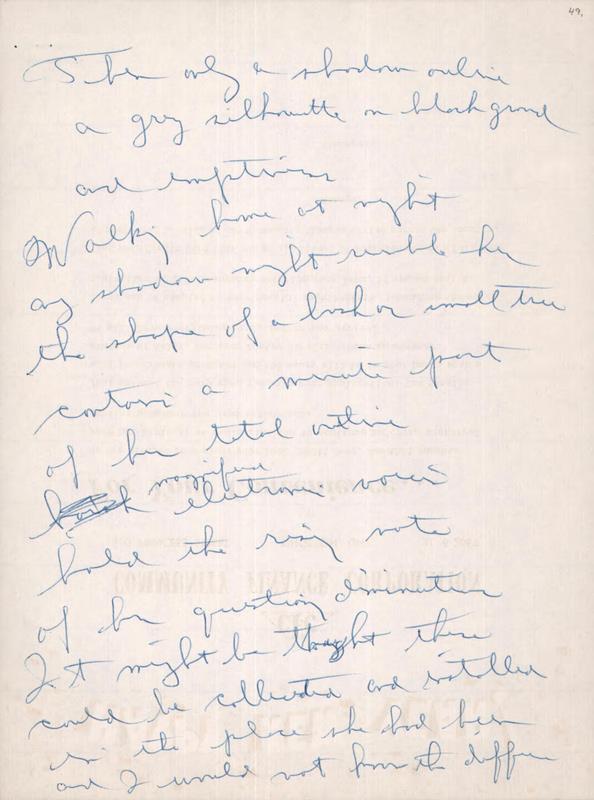 49.
I hen only a shadow outline
a grey silhouette on blackground
and emptiness
Walking home at night
any shadow might resemble her
the shape of a bush or small tree
contains a minute part
of her total outline
magnifier
electronic voices
hold the rising note
of her question, diminutive
It might be thought these
could be collected and installed
in the place she had been
and I would not know the differen